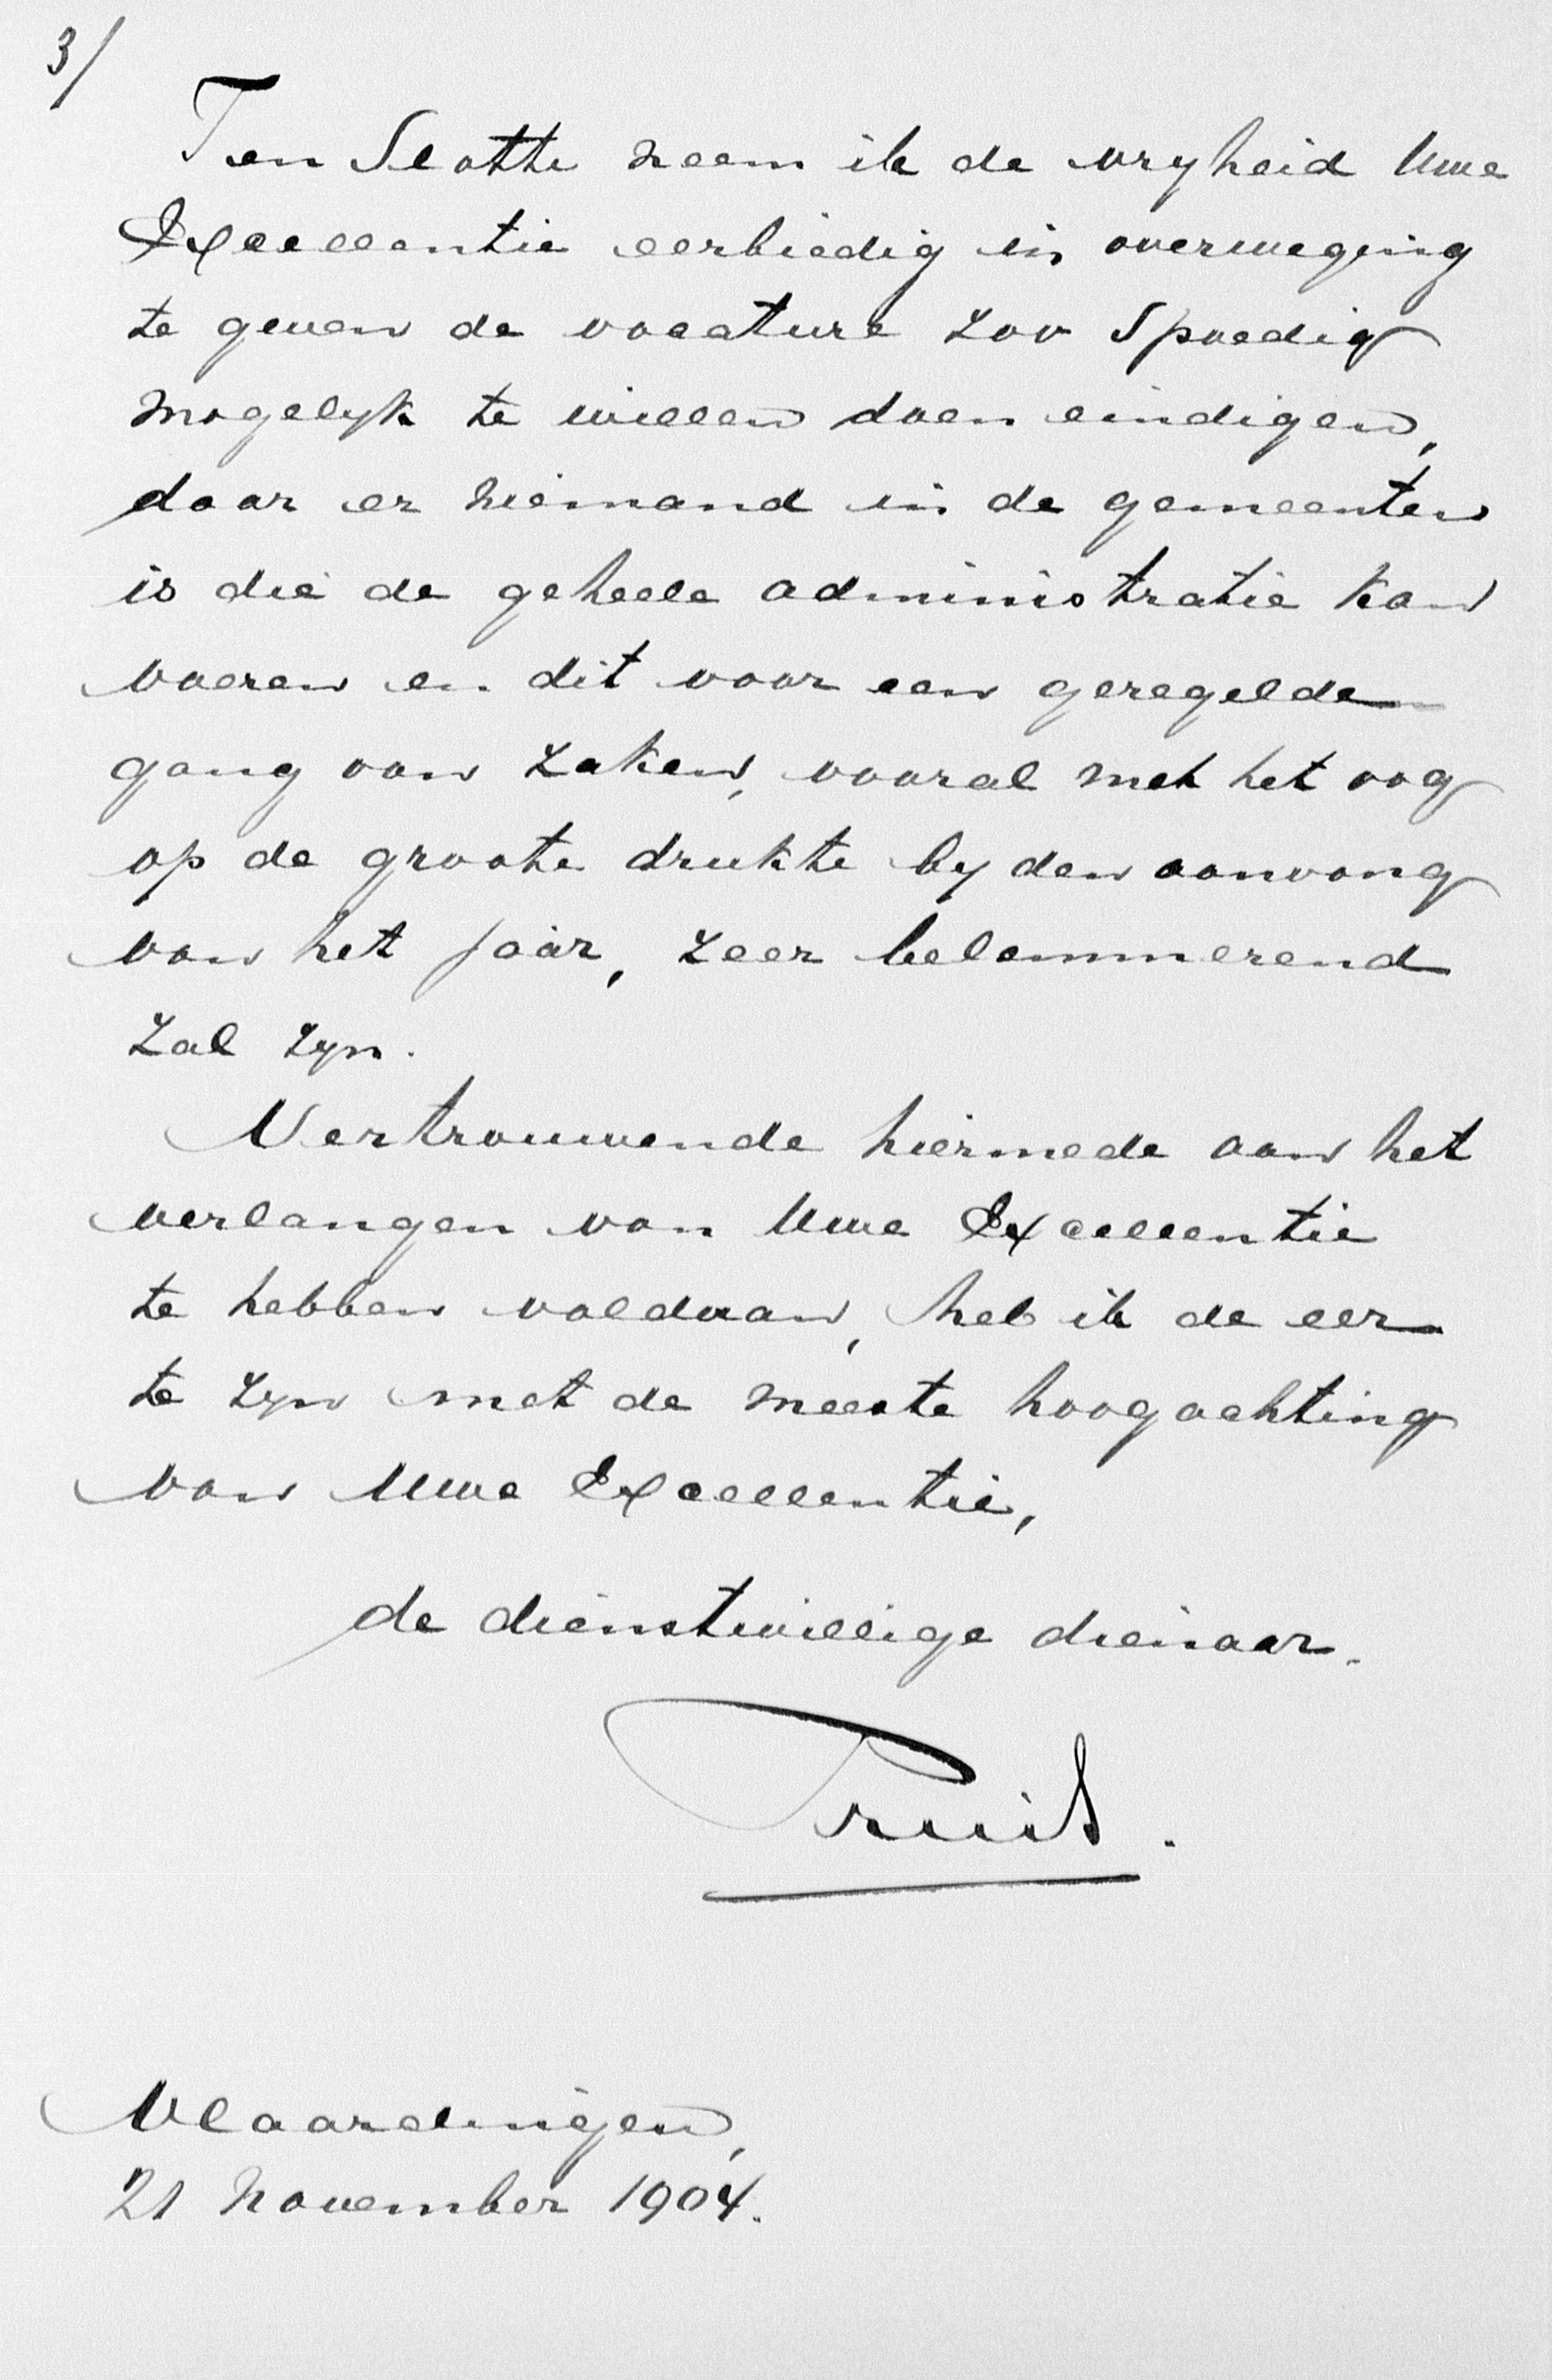 3/
Ten Slotte neem ik de vryheid Uwe
Excellentie eerbiedig in overweging
te geven de vacature zoo Spoedig
mogelyk te willen doen eindigen,
daar er niemand in de gemeenten
is die de geheele administratie kan
voeren en dit voor een geregelde
gang van zaken, vooral met het oog
op de groote drukte by den aanvang
van het jaar, zeer belemmerend
zal zyn.
Vertrouwende hiermede aan het
verlangen van Uwe Excellentie
te hebben voldaan, heb ik de eer
te zyn met de meeste hoogachting
van Uwe Excellentie,
de dienstwillige dienaar.
Vlaardingen,
21 november 1904.